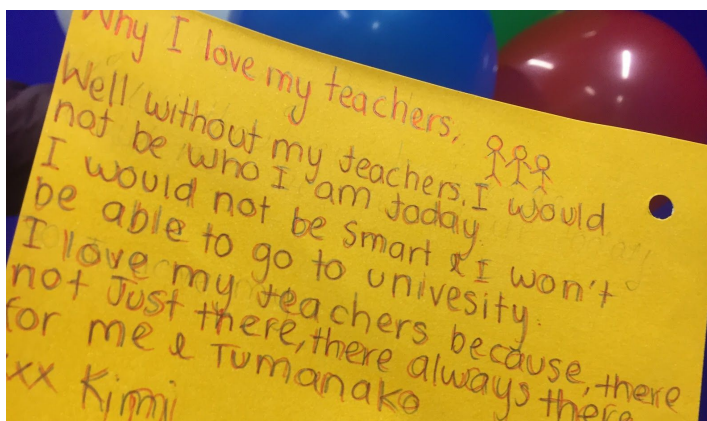 Why I love my teachers,
Well without my teachers, I would
not be who I am today.
I would not be smart & I won't
be able to go to univesity.
I love my teachers because, there
not Just there, there always there
for me & Tumanako
xxx Kimi